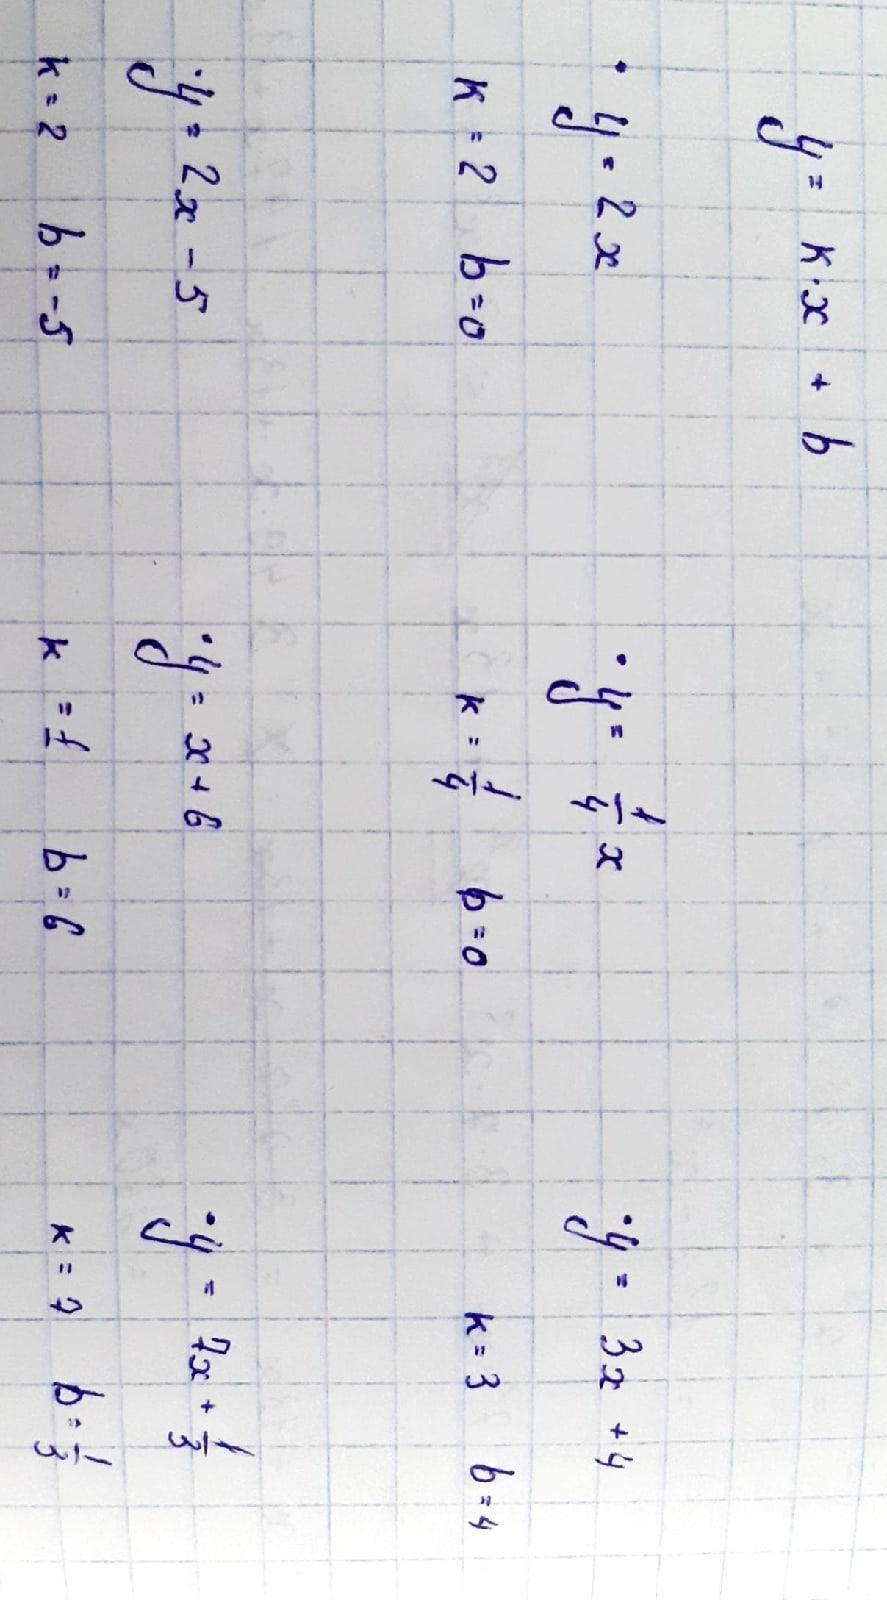 y = k·x + b
· y = 2x · y = 1/4 x · y = 3x + 4
k = 2 b = 0 k = 1/4 b = 0 k = 3 b = 4
· y = 2x - 5 · y = x + 6 · y = 7x + 1/3
k = 2 b = -5 k = 1 b = 6 k = 7 b = 1/3